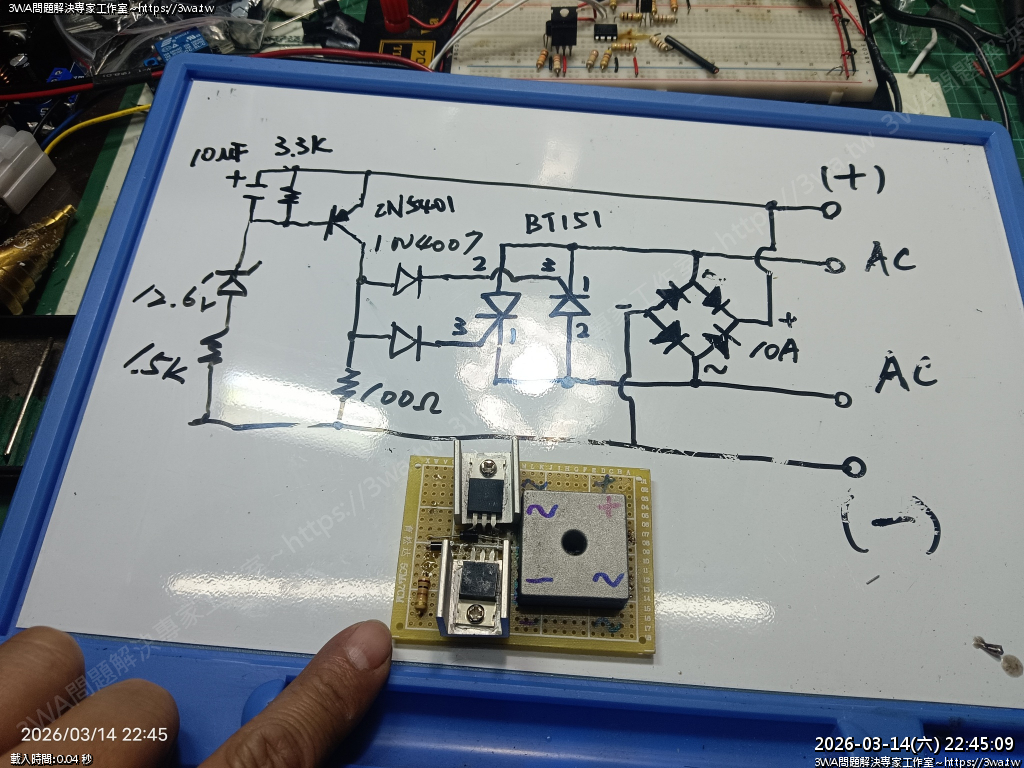 3WA問題解決專家工作室~https://3wa.tw
3WA問題解決專家工作室~https://3wa.tw
10μF
3.3K
+
2N5401
1N4007
BT151
(+)
AC
2
3
1
12.6V
3
1
2
-
~
+
10A
~
1.5K
100Ω
AC
(-)
~
+
-
~
2026/03/14 22:45
載入時間:0.04 秒
2026-03-14(六) 22:45:09
3WA問題解決專家工作室~https://3wa.tw